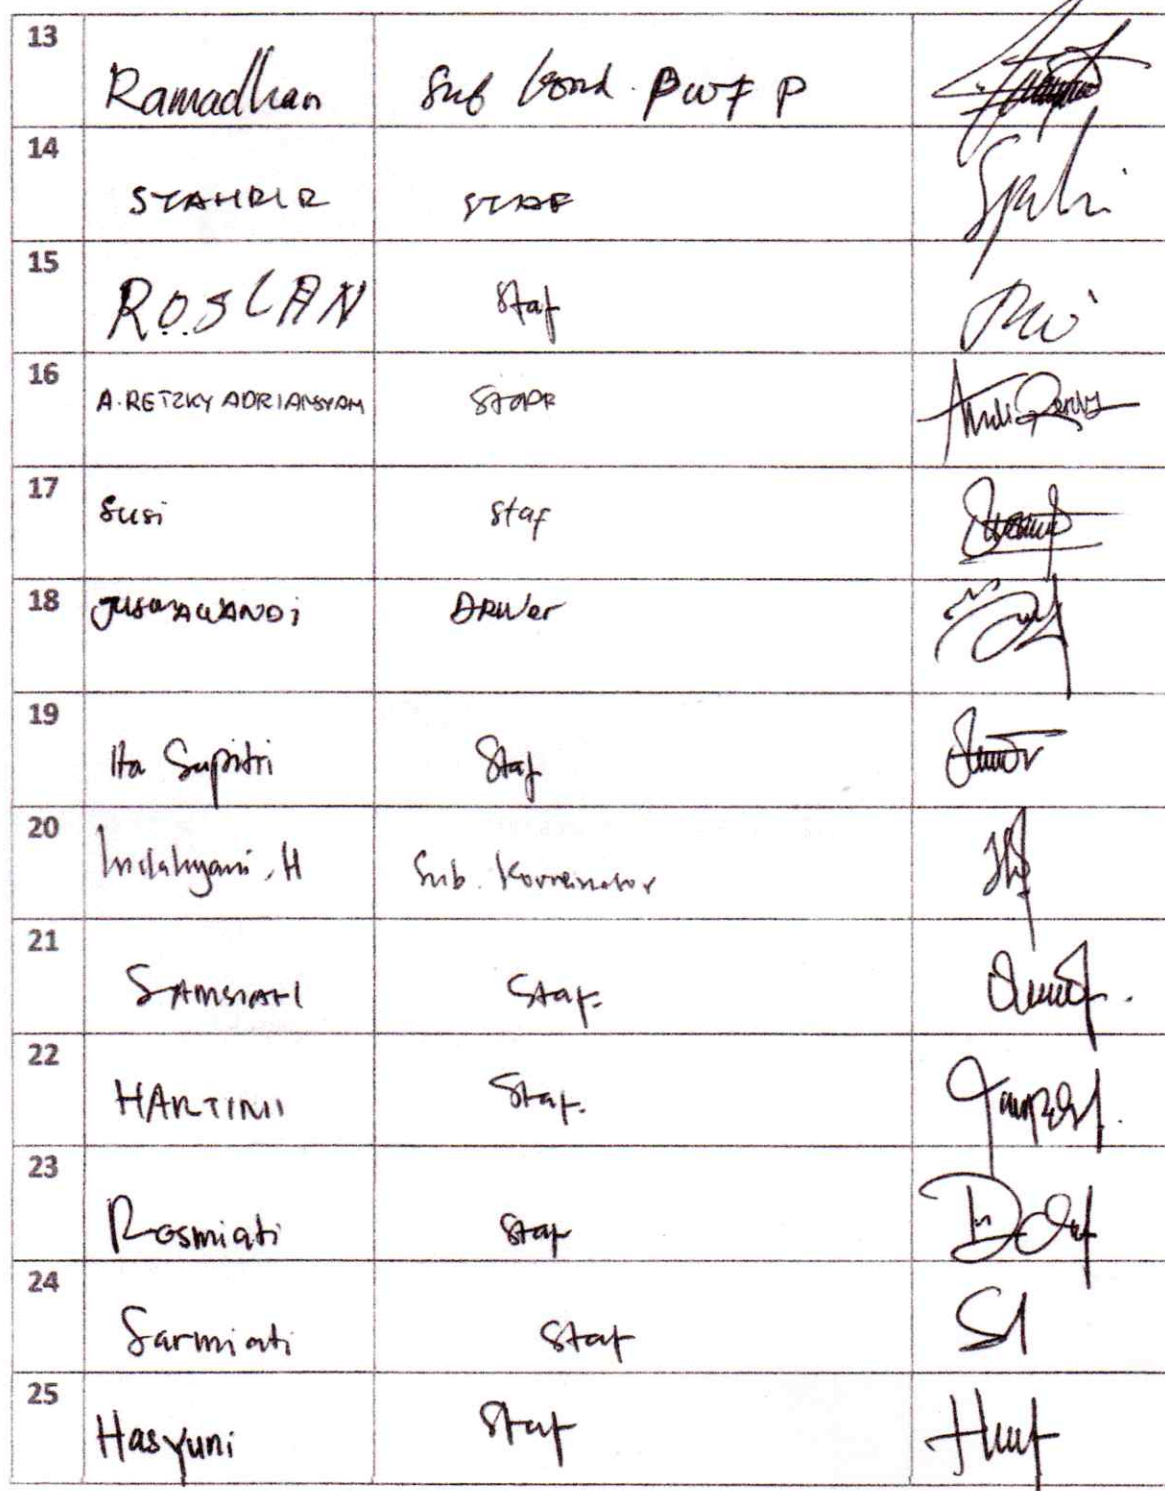 13 Ramadhan Sub Koord. PWF P
14 SYAHRIR STAF
15 ROSLAN Staf
16 A. RETZKY ADRIANSYAH STAF
17 Susi Staf
18 Driver
19 Ita Sapitri Staf
20 Indahyani. H Sub. Koordinator
21 SAMSIATI Staf.
22 HARTINI Staf.
23 Rosmiati Staf
24 Sarmiati Staf
25 Hasyuni Staf